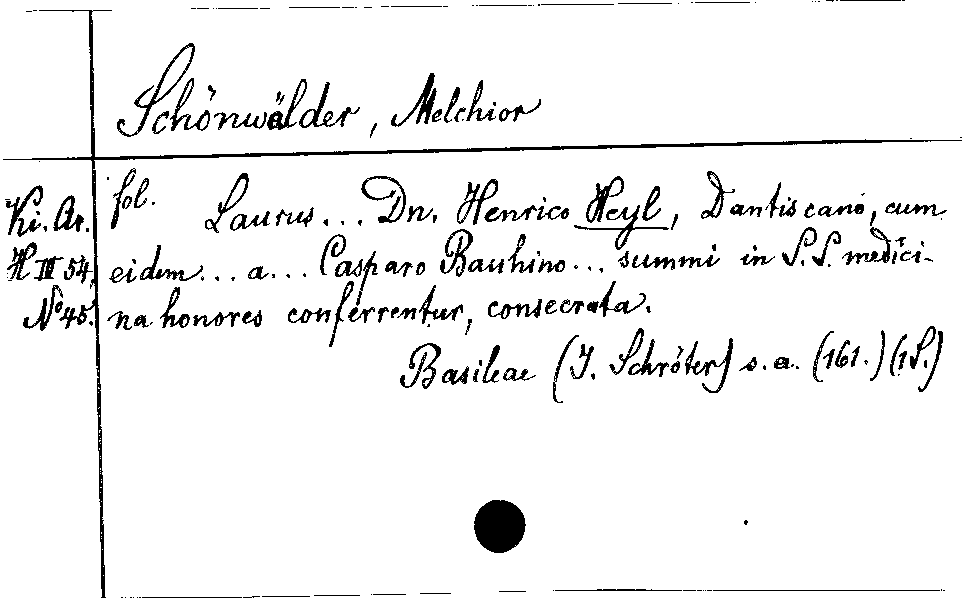 Schönwälder, Melchior
Ki. Ar. fol. Laurus... Dn. Henrico Heyl, Dantiscano, cum
H III 54, eidem... a... Casparo Bauhino... summi in S.S. medici-
No 45. na honores conferrentur, consecrata.
Basileae (J. Schröter) s. a. (161.) (1 S.)